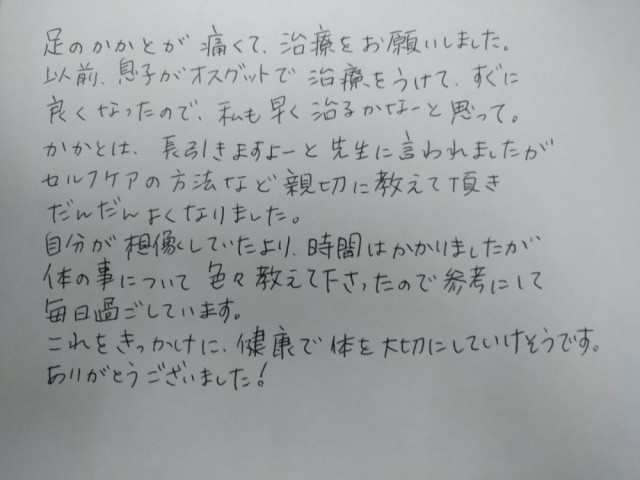 足のかかとが痛くて、治療をお願いしました。
以前、息子がオスグットで治療をうけて、すぐに
良くなったので、私も早く治るかなーと思って。
かかとは、長引きますよーと先生に言われましたが
セルフケアの方法など親切に教えて頂き
だんだんよくなりました。
自分が想像していたより、時間はかかりましたが
体の事について色々教えて下さったので参考にして
毎日過ごしています。
これをきっかけに、健康で体を大切にしていけそうです。
ありがとうございました!